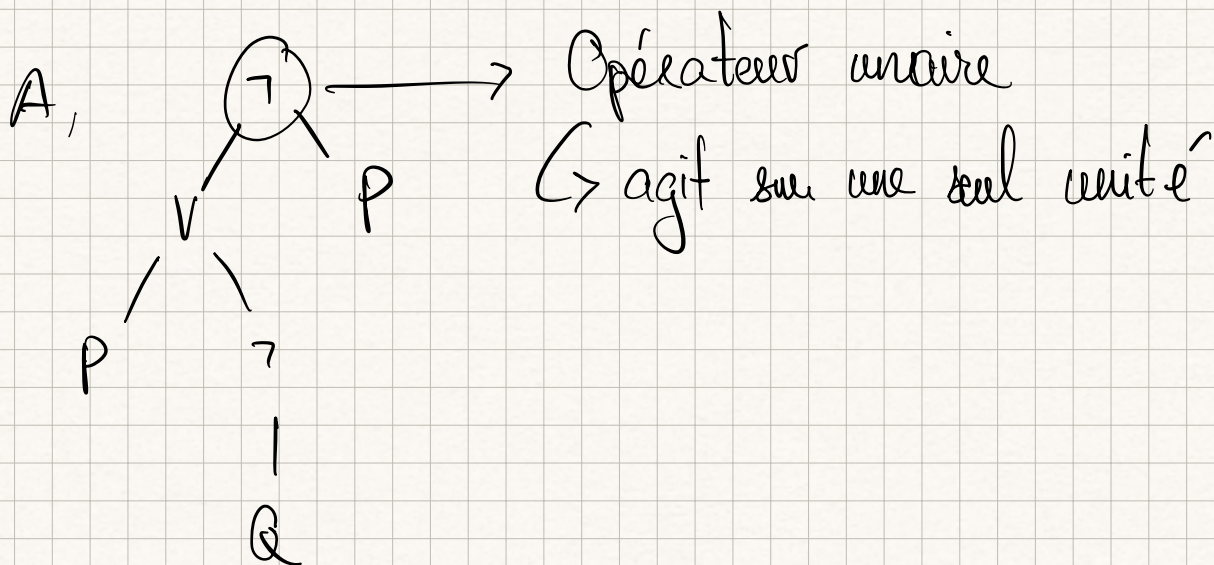 A, ¬ → Opérateur unaire
↳ agit sur une seul unité
V P
P ¬
Q